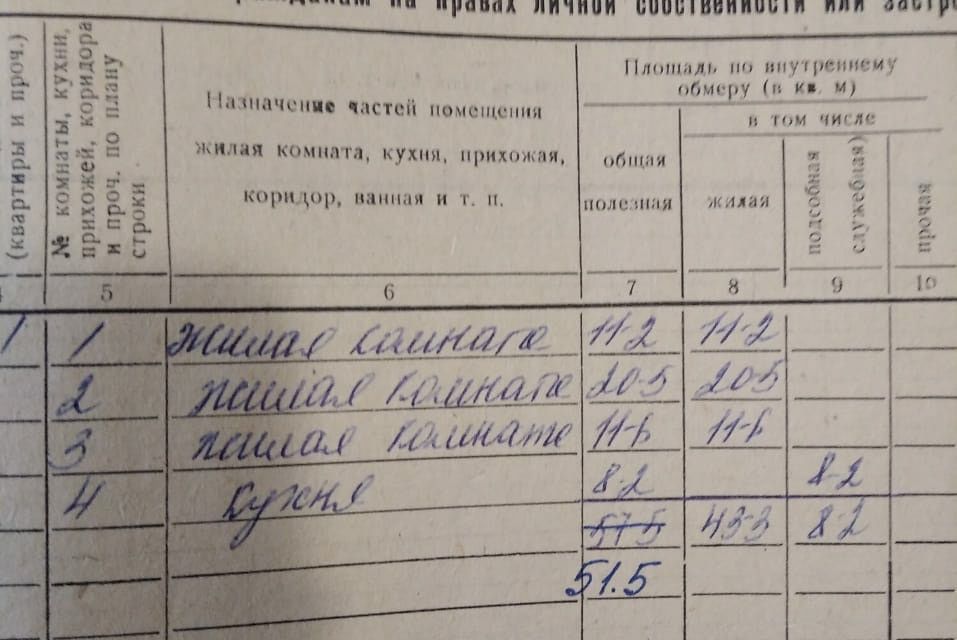 на правах личной собственности или застро
(квартиры и проч.)
№ комнаты, кухни,
прихожей, коридора
и проч. по плану
строки
Назначение частей помещения
жилая комната, кухня, прихожая,
коридор, ванная и т. п.
Площадь по внутреннему
обмеру (в кв. м)
общая
полезная
в том числе
жилая
подсобная
служебная)
прочая
5 6 7 8 9 10
1 1 жилая комната 11-2 11-2
2 жилая комната 20-5 20-5
3 жилая комната 11-6 11-6
4 кухня 8-2 8-2
57-5 43-3 8-2
51.5